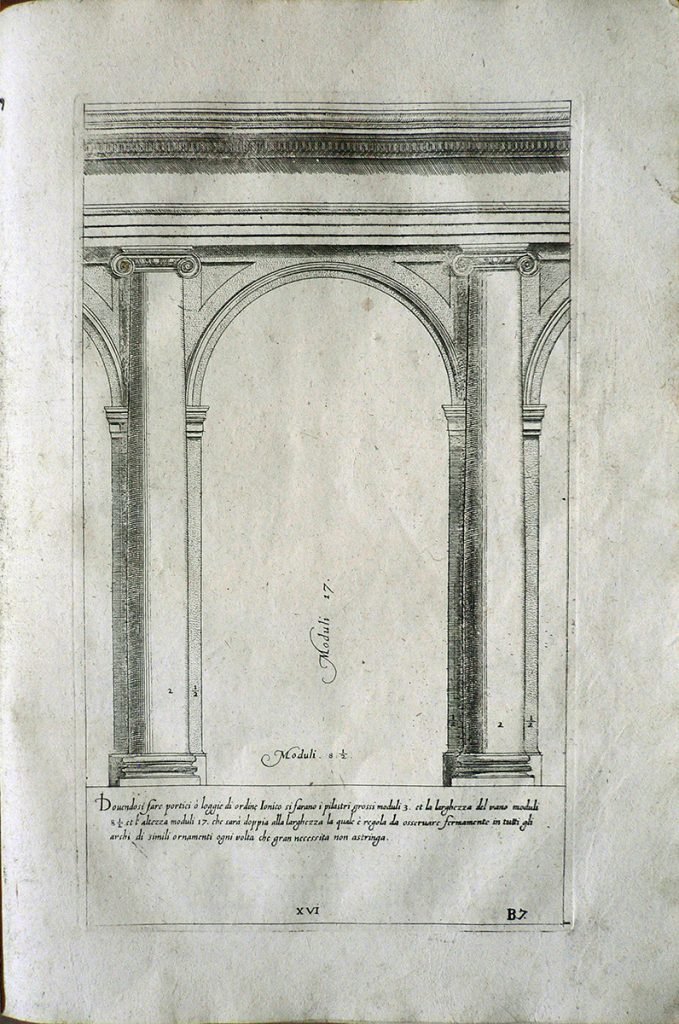 Moduli 17.
2 ½
½ 2 ½
Moduli . 8 ½
Douendosi fare portici ò loggie di ordine Ionico si farano i pilastri grossi moduli 3. et la larghezza del vano moduli
8 ½ et l'altezza moduli 17. che sarà doppia alla larghezza la quale è regola da osseruare fermamente in tutti gli
archi di simili ornamenti ogni volta che gran necessità non astringa.
XVI
B7.